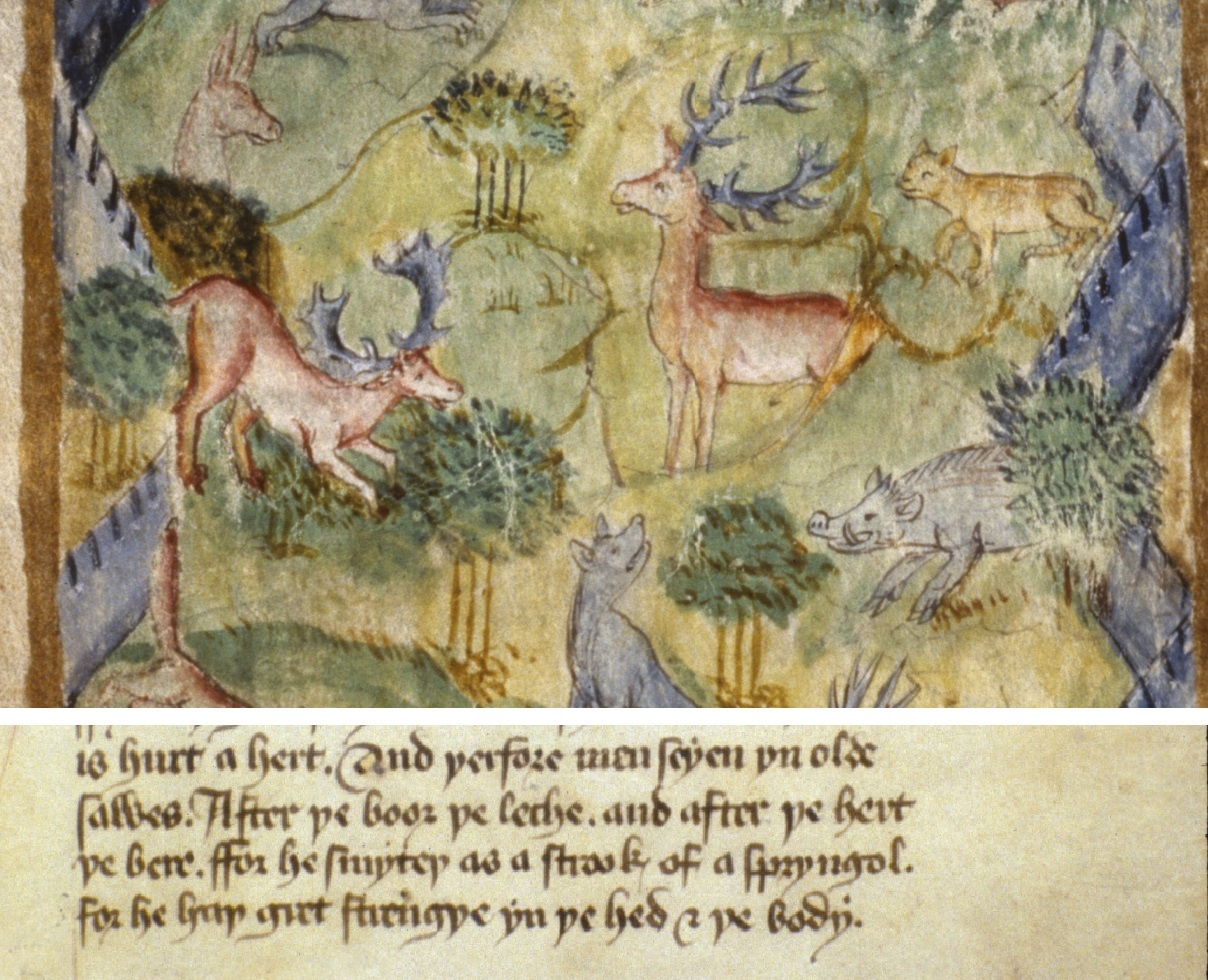 is hurt a hert. And þerfore men seyen yn olde
sawes. After þe boor þe leche. and after þe hert
þe bere. ffor he smyteþ as a strook of a spryngol.
for he haþ gret strengþe yn þe hed & þe body.